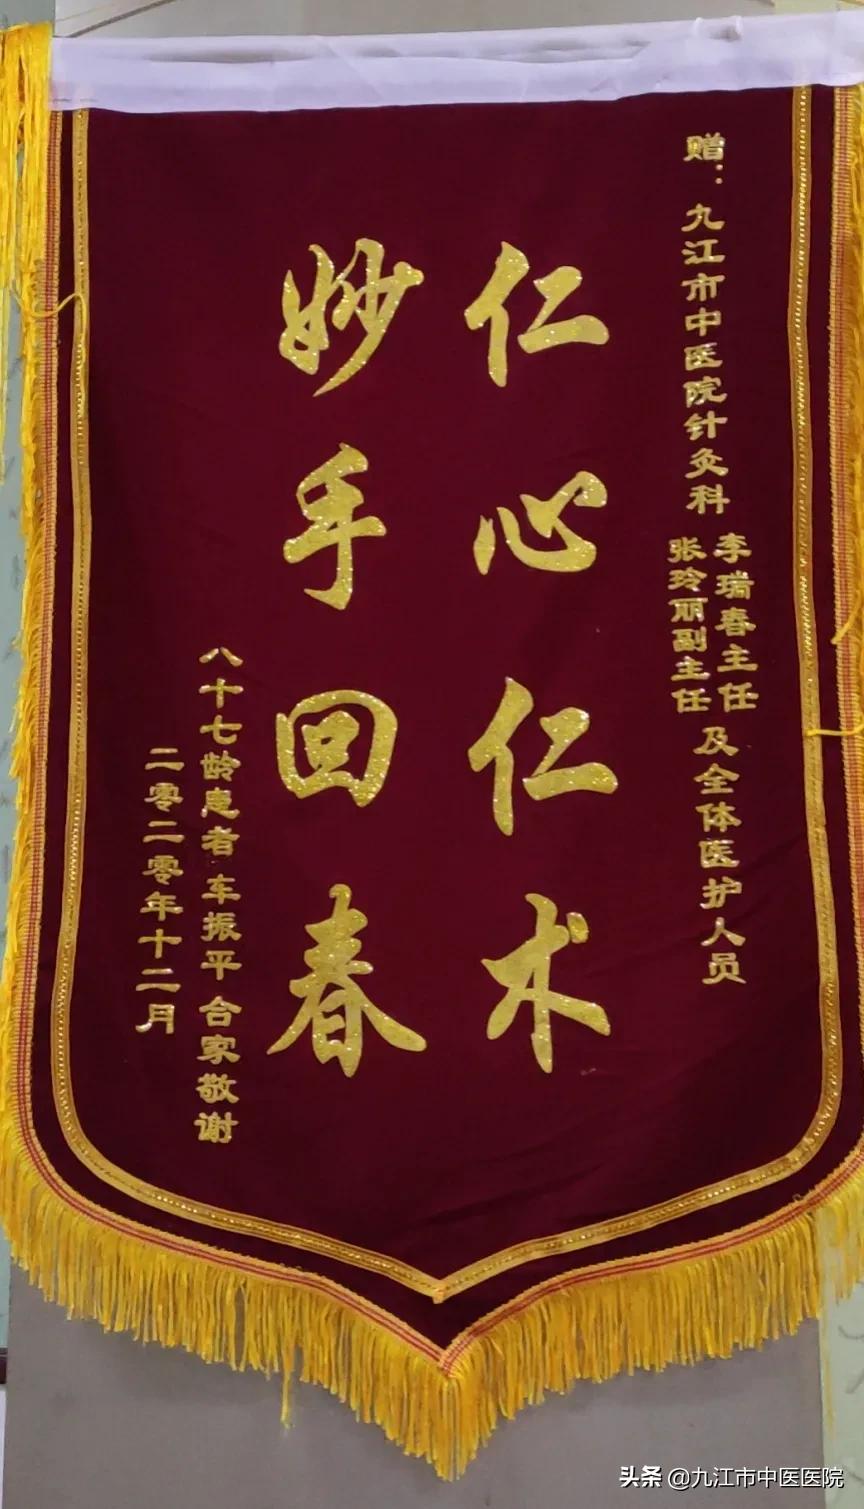 赠：九江市中医院针灸科
李瑞春主任
张玲丽副主任
及全体医护人员
仁心仁术
妙手回春
八十七龄患者 车振平 合家敬谢
二零二零年十二月
头条 @九江市中医医院